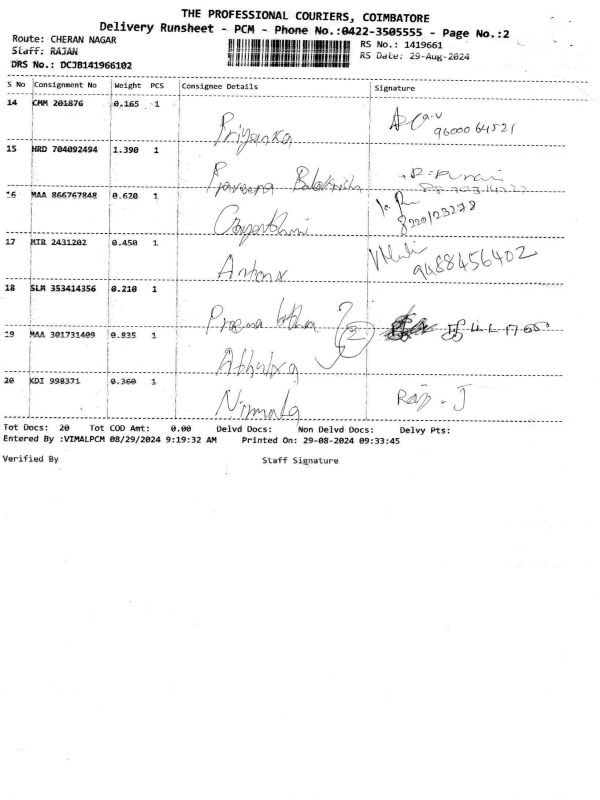 THE PROFESSIONAL COURIERS, COIMBATORE
Delivery Runsheet - PCM - Phone No.:0422-3505555 - Page No.:2
Route: CHERAN NAGAR
RS No.: 1419661
Staff: RAJAN
RS Date: 29-Aug-2024
DRS No.: DCJB141966102
S No Consignment No Weight PCS Consignee Details Signature
14 CMM 201876 0.165 1
Priyanka
9600064521
15 HRD 704092494 1.390 1
16 MAA 866767848 0.620 1
17 MTR 2431202 0.450 1
Antony
9488456402
18 SLM 353414356 0.210 1
Prema
2
19 MAA 301731409 0.835 1
20 KDI 998371 0.360 1
Nirmala
Raj. J
Tot Docs: 20 Tot COD Amt: 0.00 Delvd Docs: Non Delvd Docs: Delvy Pts:
Entered By :VIMALPCM 08/29/2024 9:19:32 AM Printed On: 29-08-2024 09:33:45
Verified By Staff Signature